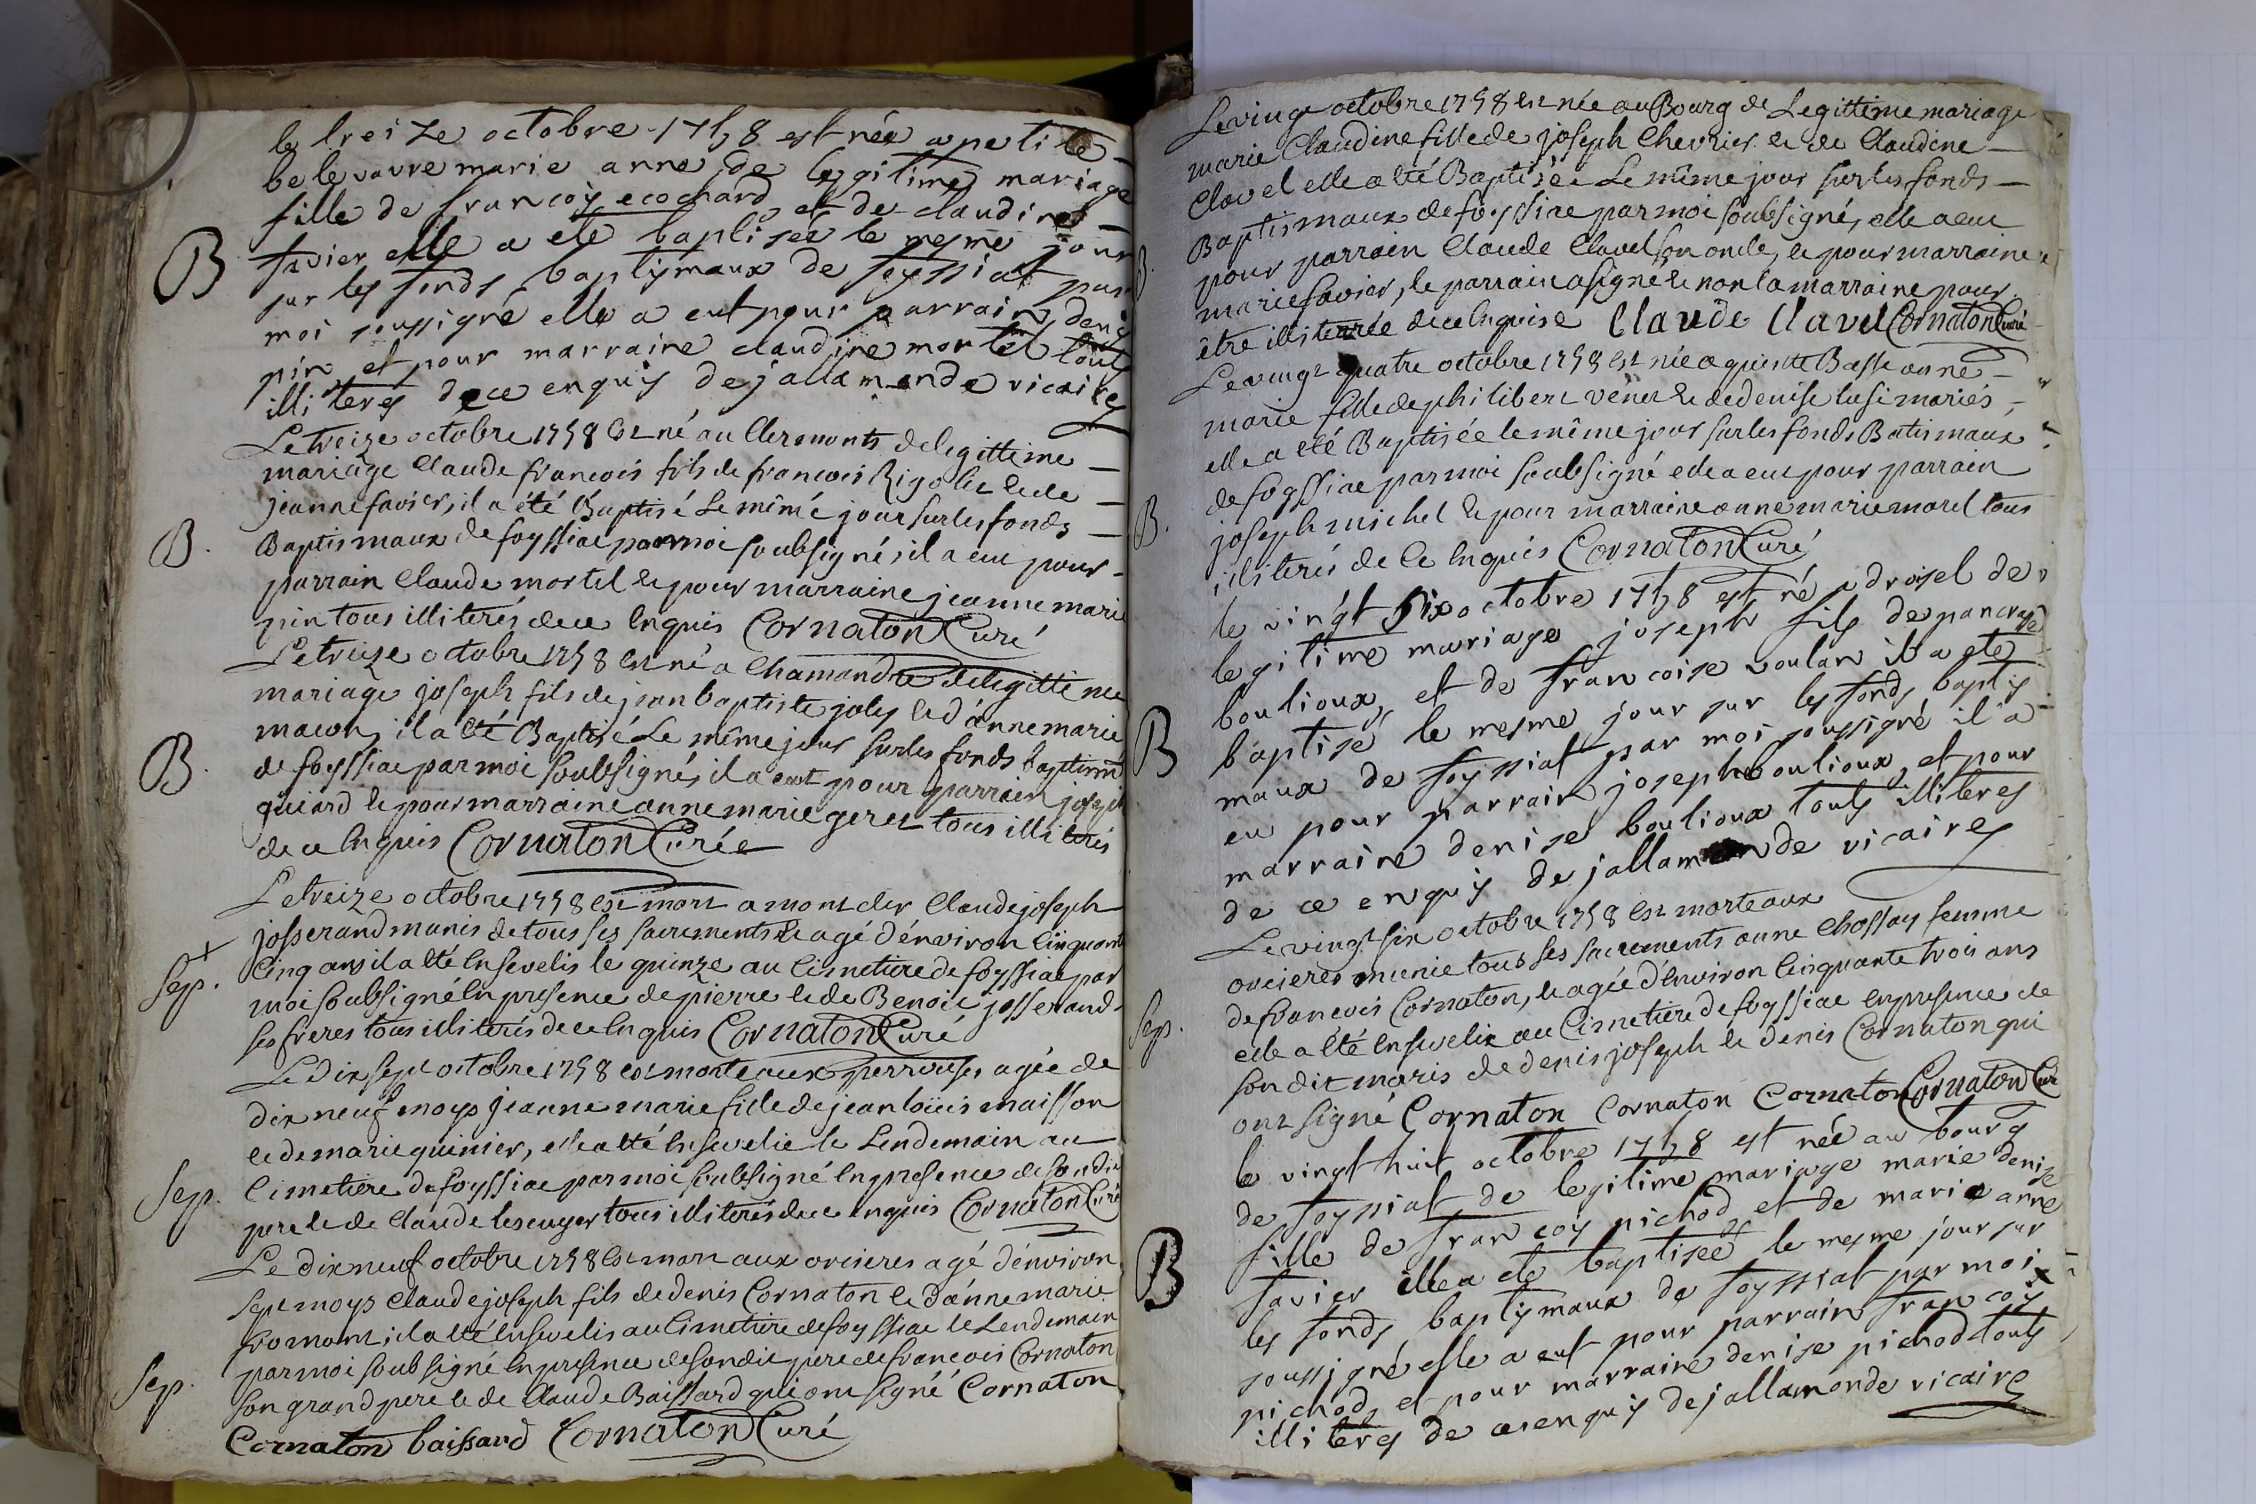 le treize octobre 1758 est née a petite
belevavre marie anne de legitime mariage
fille de francois ecochard et de claudine
favier elle a ete baptisée le mesme jour
B
sur les fonds baptismaux de foyssiat par
moi soussigné elle a eut pour parrain denis
pin et pour marraine claudine mortel touts
illiteres de ce enquis dejallamonde vicaire
Le treize octobre 1758 est né au Clermonts de legittime
mariage Claude françois fils de francois Rigolet et de
jeanne favier, il a été Baptisé Le même jour sur les fonds
B.
Baptismaux de foyssiac par moi soubsigné, il a eu pour
parrain Claude mortel et pour marraine jeanne marie
pin tous illiterés de ce Enquis Cornaton Curé
Le treize octobre 1758 est né a Chamandre de legittime
mariage joseph fils de jean baptiste joly et d'anne marie
macon, il a été Baptisé Le même jour sur les fonds baptism
B.
de foyssiac par moi soubsigné, il a eut pour parrain joseph
guiard et pour marraine anne marie geret tous illiterés
de ce Enquis Cornaton Curée
Le treize octobre 1758 est mort a montcler Claude joseph
josserand munis de tous ses sacrements et agé d'énviron Cinquante
Sep.
Cinq ans il a été Ensevelis le quinze au Cimetiere de foyssiac par
moi soubsigné En presence de pierre et de Benoit josserand
ses freres tous illiterés de ce Enquis Cornaton Curé
Le Dix sept octobre 1758 est morte aux perrouses agée de
Dix neuf moys jeanne marie fille de jean loüis maisson
et de marie guinier, elle a été Ensevelie le Lendemain au
Sep.
Cimetiere de foyssiac par moi soubsigné En presence de son dit
pere et de Claude lescuyer tous illiterés de ce Enquis Cornaton Curé
Le Dix neuf octobre 1758 est mort aux orcieres agé d'énviron
sept moys Claude joseph fils de denis Cornaton et d'anne marie
fromont il a été Ensevelis au Cimetiere de foyssiac le Lendemain
par moi soubsigné En presence de son dit pere de francois Cornaton
Sep.
son grand pere et de Claude Baissard qui ont signé Cornaton
Cornaton baissard Cornaton Curé
Le vingt octobre 1758 est née au Bourg de Legittime mariage
marie Claudine fille de joseph Chevrier et de Claudine
Clavel elle a été Baptisée Le même jour sur les fonds
Baptismaux de foyssiac par moi soubsigné, elle a eu
B.
pour parrain Claude Clavel son oncle, et pour marraine
marie favier, le parrain a signé et non la marraine pour
être illiterée de ce Enquise Claude Clavel Cornaton Curé
Le vingt quatre octobre 1758 est née a Basse anne
marie fille de philibert venet et de denise lusi mariés,
elle a été Baptisée le même jour sur les fonds Batismaux
de foyssiac par moi soubsigné elle a eu pour parrain
B.
joseph michel et pour marraine anne marie morel tous
illiterés de Ce Enquis Cornaton Curé
le vingt six octobre 1758 est né a droisel de
legitime mariage joseph fils de pancrase
boulioux, et de francoise voulan il a ete
B
baptisé le mesme jour sur les fonds baptis
maux de foyssiat par moi soussigné il a
eu pour parrain joseph boulioux, et pour
marraine denise boulioux touts illiteres
de ce enquis de jallamonde vicaire
Le vingt six octobre 1758 est morte aux
orcieres munie tous ses sacrements anne Chossay femme
de francois Cornaton, et agée d'énviron Cinquante trois ans
Sep.
elle a été Ensevelie au Cimetiere de foyssiac En presence de
son dit maris de denis joseph et denis Cornaton qui
ont signé Cornaton Cornaton Cornaton Cornaton Curé
le vingt huit octobre 1758 est née au bourg
de foyssiat de legitime mariage marie denise
fille de francois pichod et de marie anne
B
favier elle a ete baptisée le mesme jour sur
les fonds baptismaux de foyssiat par moi
soussigné elle a eut pour parrain francois
pichod, et pour marraine denise pichod touts
illiteres de ce enquis dejallamonde vicaire